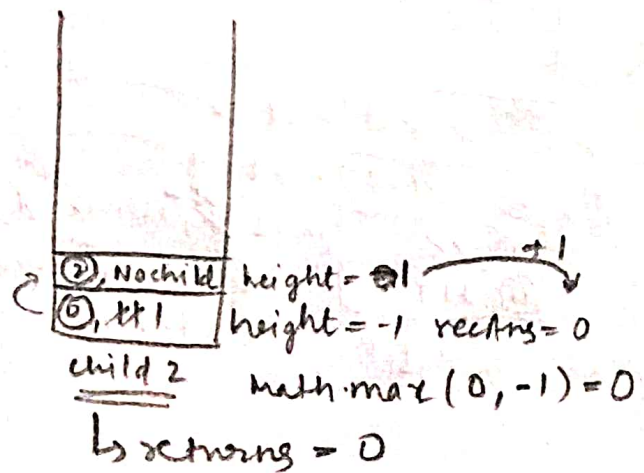 +1
②, Nochild height = -1
⑤, #1 height = -1 recAns = 0
child 2 Math.max (0, -1) = 0
↳ returns = 0